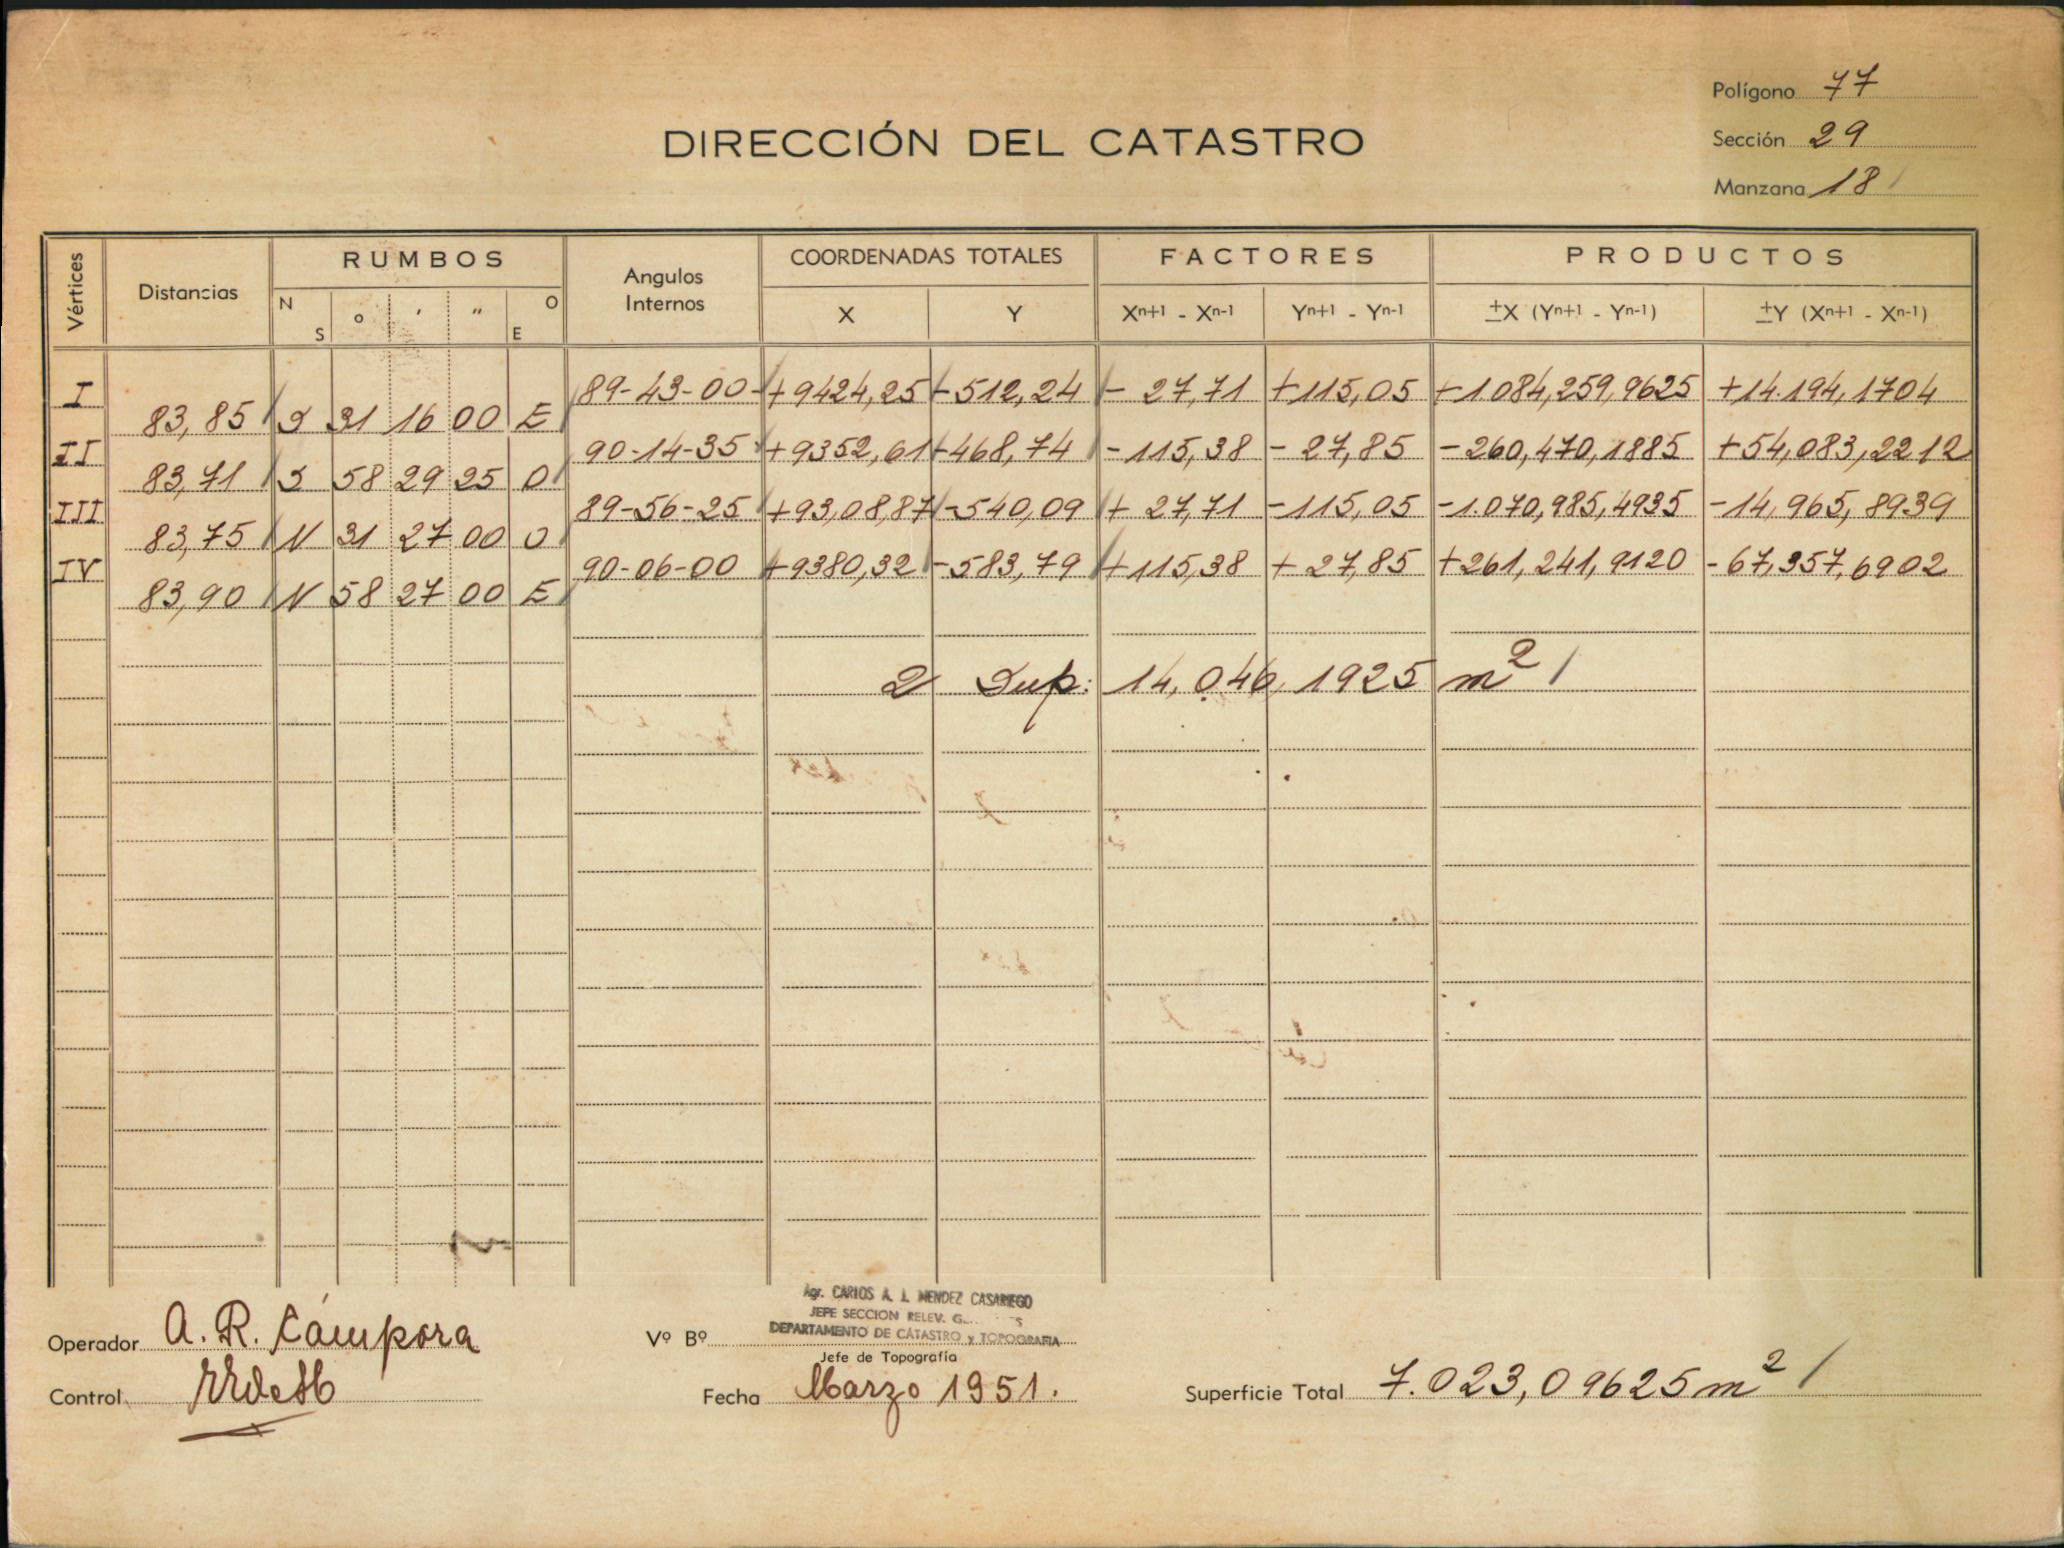 Polígono 77
DIRECCIÓN DEL CATASTRO
Sección 29
Manzana 18
Vértices Distancias RUMBOS Angulos Internos COORDENADAS TOTALES FACTORES PRODUCTOS
N S o ' " O E X Y Xn+1 - Xn-1 Yn+1 - Yn-1 ±X (Yn+1 - Yn-1) ±Y (Xn+1 - Xn-1)
I 89-43-00 +9424,25 -512,24 - 27,71 +115,05 +1084,259,9625 +14.194,1704
83,85 S 31 16 00 E
II 90-14-35 +9352,61 -468,74 -115,38 - 27,85 -260,470,1885 +54,083,2212
83,71 S 58 29 25 O
III 89-56-25 +93,08,87 -540,09 + 27,71 -115,05 -1.070,985,4935 -14,965,8939
83,75 N 31 27 00 O
IV 90-06-00 +9380,32 -583,79 +115,38 + 27,85 +261,241,9120 -67,357,6902
83,90 N 58 27 00 E
2 Sup: 14,046,1925 m²
Agr. CARLOS A. J. MENDEZ CASARIEGO
JEFE SECCION RELEV.
DEPARTAMENTO DE CATASTRO y TOPOGRAFIA
Operador A. R. Cámpora Vº Bº
Jefe de Topografía
Control Fecha Marzo 1951. Superficie Total 7.023,09625 m²